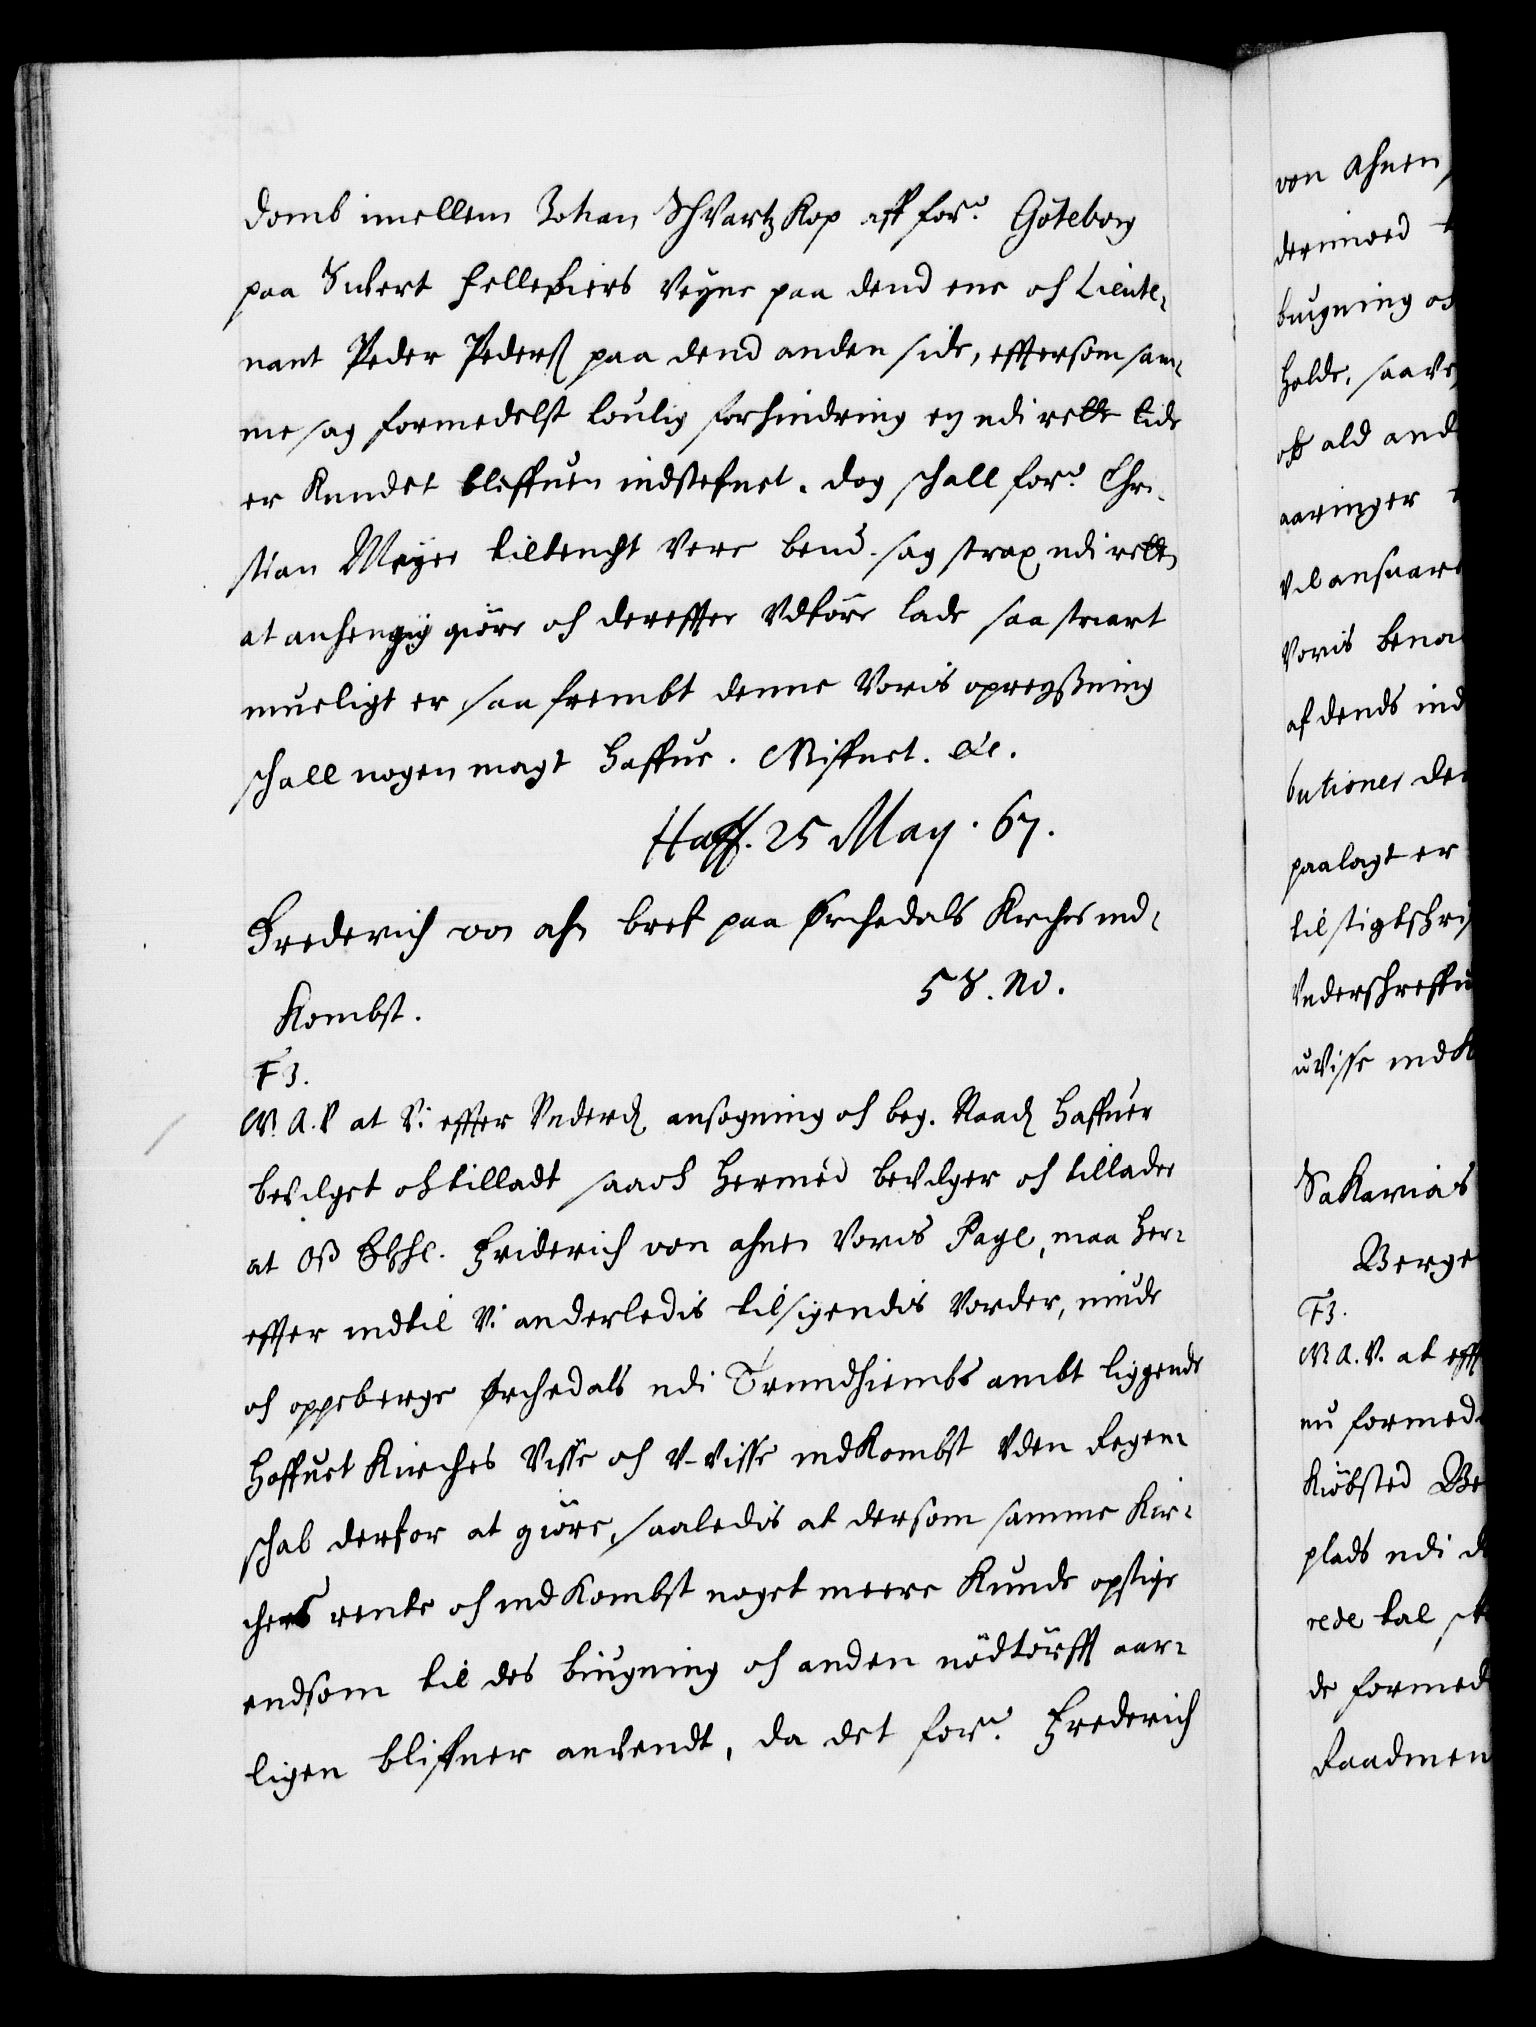 domb imellem Johan Schvartz Kop aff for.ne Göteborg
paa Sivert Felleßiers Vegne paa dend ene och Lieute-
nant Peder Peders: paa dend anden side, effersom sam-
me sag formedelst loulig forhindring ej udi rette tide
er kundet bleffuen indstefnet. dog schall for.ne Chri-
stian Meyer tiltencht Vere bem.te sag strax udi retten
at anhengig giöre och dereffter Udföre lade saa snart
mueligt er, saa frembt denne Voris opreyßning
schall nogen magt haffue. Giffuet. etc.
Haff. 25 May. 67.
Frederich von ahn bref paa Ørchedals Kirches ind-
Kombst.
58. No.
F3.
G. A. V at Vi effter Underd: ansøgning och beg. Naad: haffuer
bevilget och tilladt saa och hermed bevilger och tillader
at Oß Elschl. Friderich von ahnen Voris Page, maa her-
effter indtil Vi anderledis tilsigendis Vorder, niude
och oppeberge Ørchedals udi Trundhiembs ambt liggende
hoffuet Kirches Visse och U-visse indkombst Uden Regen-
schab derfor at giöre, saaledis at dersom samme Kir-
ches rente och indkombst noget meere kunde opstige
endsom til des biugning och anden nödtörfft aar-
ligen bliffuer anvendt, da det for.ne Frederich
von Ahnen
derimod
bugning och
holde, saave
och ald and
aaringer
Vil ansvare
Voris bena
af dends ind
butioner de
paalagt er
til stigtschri
Underschreffu
uvisse indk
Sakarias
Berge
F3.
G. A. V. at eff
nu formed
Kiöbsted Be
plads udi d
rede tal sk
de formed
Raadmen